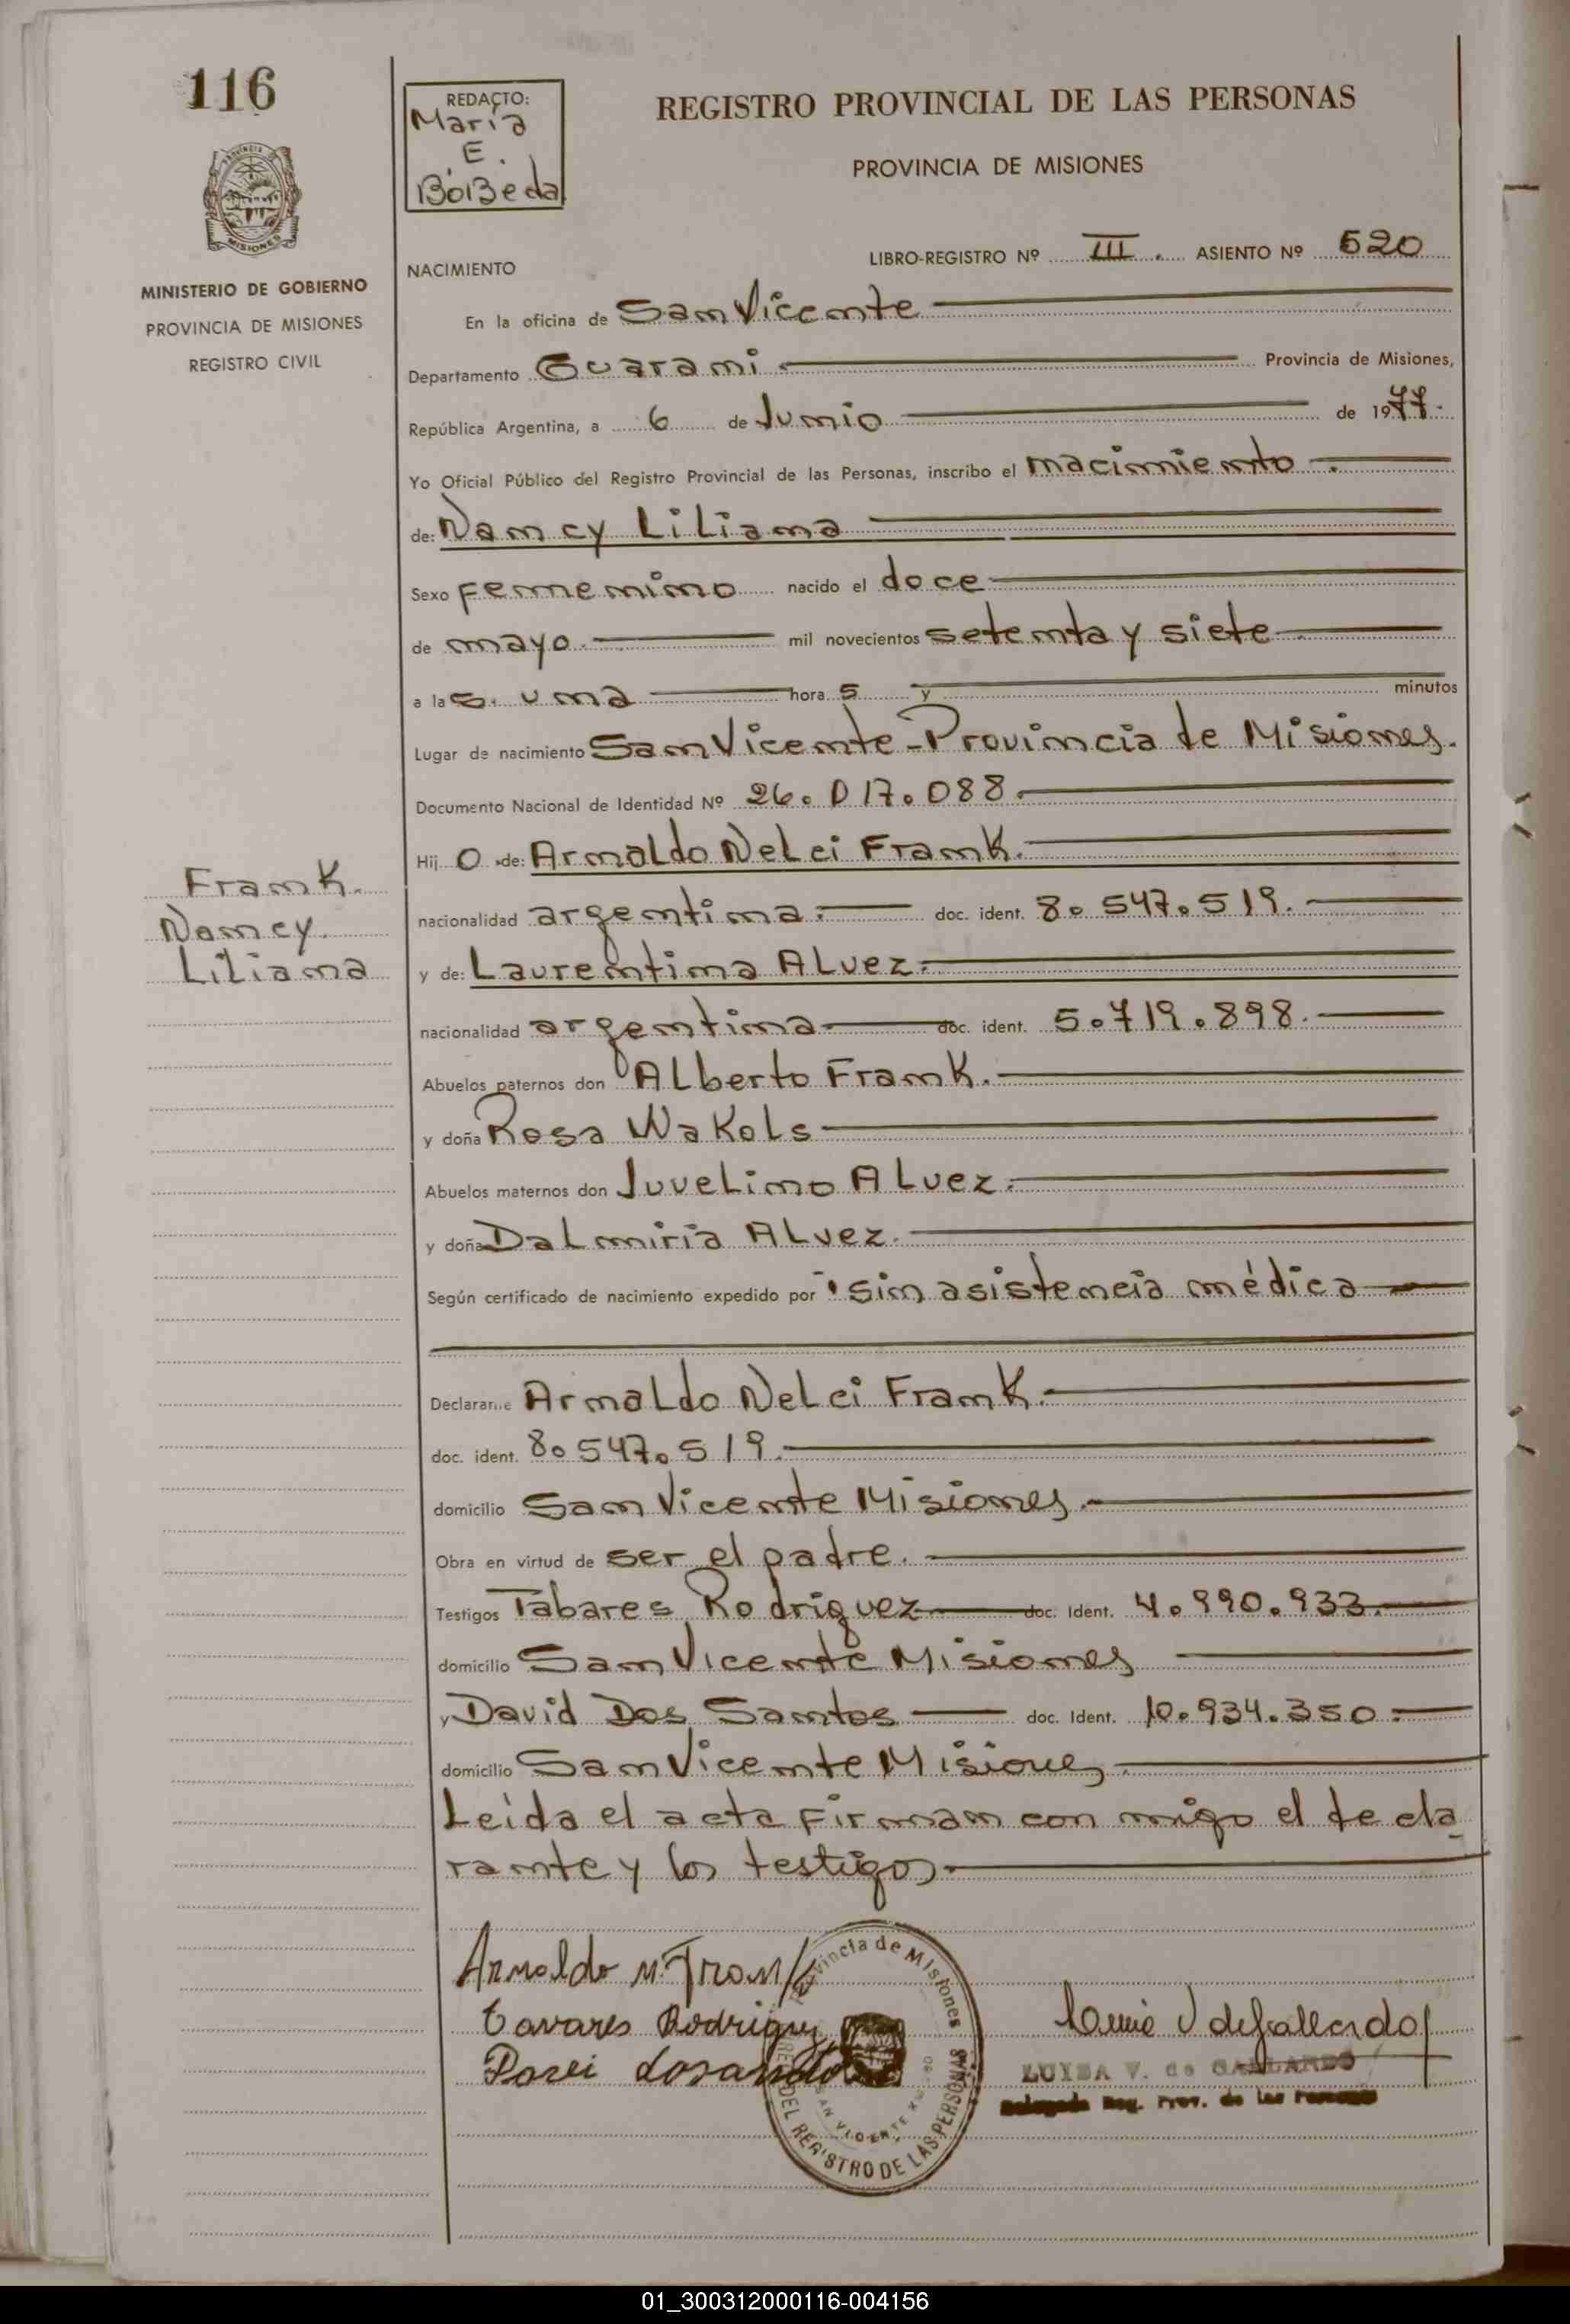 116
REDACTO:
María
E.
BoBeda
REGISTRO PROVINCIAL DE LAS PERSONAS
PROVINCIA DE MISIONES
MINISTERIO DE GOBIERNO
PROVINCIA DE MISIONES
REGISTRO CIVIL
NACIMIENTO
LIBRO-REGISTRO Nº III. ASIENTO Nº 520
En la oficina de San Vicente
Departamento Guarani Provincia de Misiones,
República Argentina, a 6 de Junio de 1977.
Yo Oficial Público del Registro Provincial de las Personas, inscribo el nacimiento
de: Nancy Liliana
Sexo Femenino nacido el doce
de mayo. mil novecientos setenta y siete
a la s. una hora s y minutos
Lugar de nacimiento San Vicente - Provincia de Misiones.
Documento Nacional de Identidad Nº 26.017.088.
Hij o de: Arnaldo Nelci Frank.
nacionalidad argentina. doc. ident. 8.547.519.
y de: Laurentina Alvez.
nacionalidad argentina doc. ident. 5.719.898.
Abuelos paternos don Alberto Frank.
y doña Rosa Wakols
Abuelos maternos don Juvelino Alvez.
y doña Dalmiria Alvez.
Según certificado de nacimiento expedido por sin asistencia médica
Declarante Arnaldo Nelci Frank.
doc. ident. 8.547.519.
domicilio San Vicente Misiones.
Obra en virtud de ser el padre.
Testigos Tabares Rodriguez doc. Ident. 4.990.933.
domicilio San Vicente Misiones
y David Dos Santos doc. Ident. 10.934.350.
domicilio San Vicente Misiones
Leida el acta firman con migo el decla
rante y los testigos.
Frank.
Nancy.
Liliana
Arnaldo N. Frank
Tavares Rodriguez
Provincia de Misiones
DEL REGISTRO DE LAS PERSONAS
SAN VICENTE
LUISA V. de GALLARDO
Delegada Reg. Prov. de las Personas
01_300312000116-004156